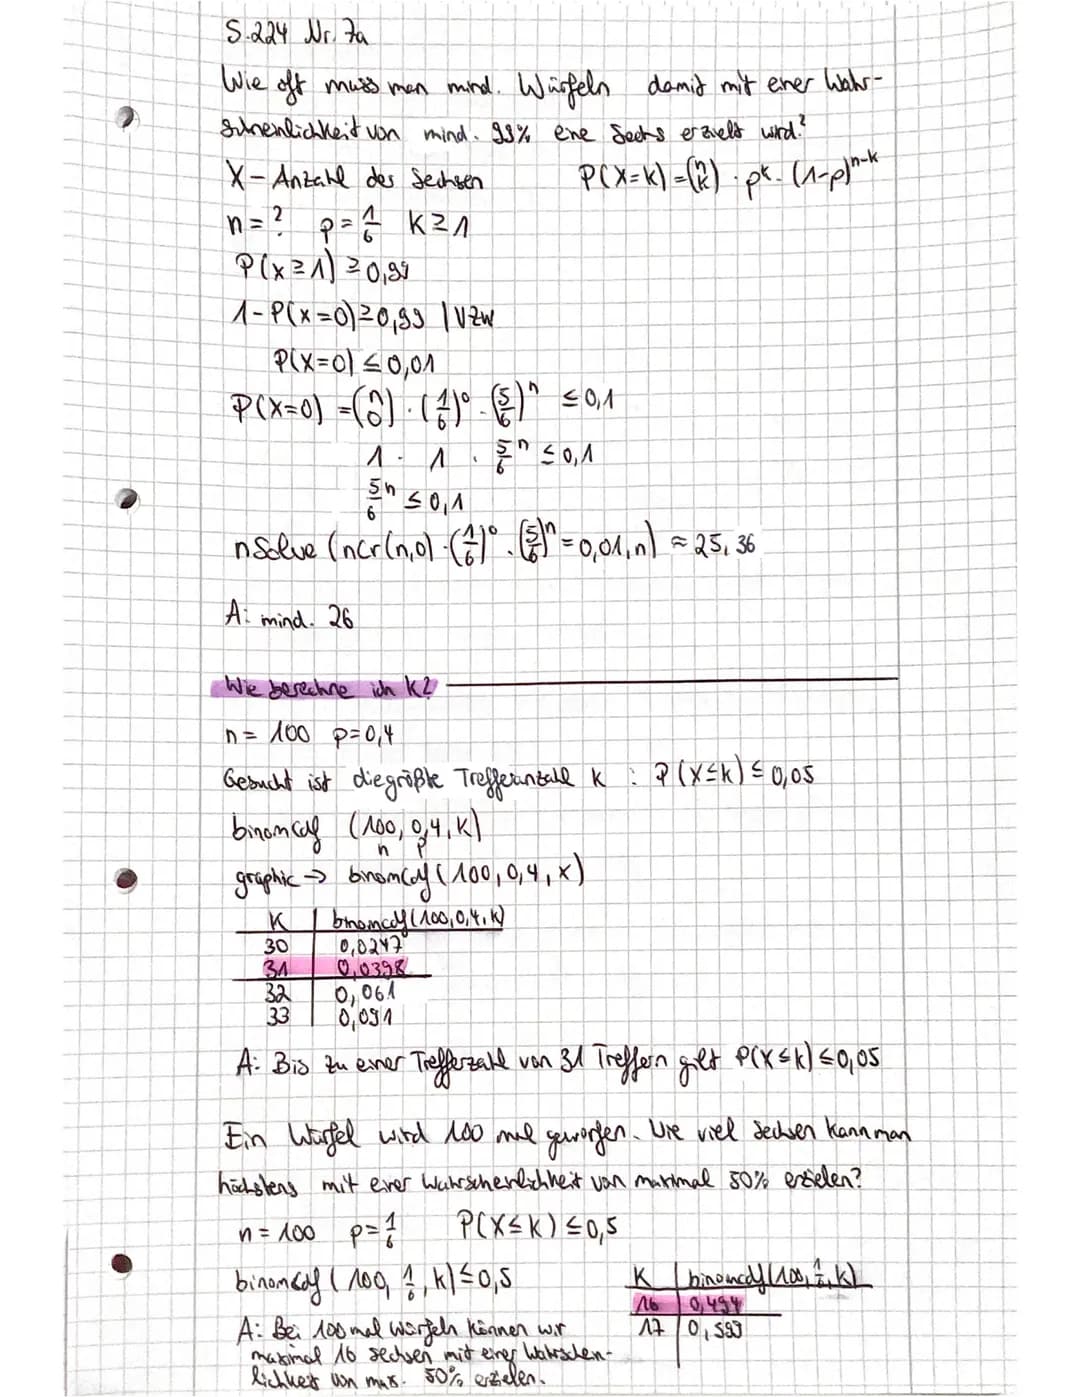 S.224 Nr. 7a
Wie oft muss man mind. Würfeln damit mit einer Wahr-
scheinlichkeit von mind. 99% eine Sechs erzielt wird?
X - Anzahl der Sechsen P(X=k) = (n k) · p^k · (1-p)^n-k
n=? p=1/6 K≥1
P(x≥1) ≥0,99
1-P(x=0)≥0,99 | VZW
P(X=0) ≤0,01
P(X=0) =(n 0) · (1/6)^0 · (5/6)^n ≤0,1
1 · 1 · 5/6^n ≤0,1
5/6^n ≤0,1
nSolve (nCr(n,0) · (1/6)^0 · (5/6)^n =0,01,n) ≈25,36
A: mind. 26
Wie berechne ich K?
n= 100 p=0,4
Gesucht ist die größte Trefferanzahl K : P(X≤k)≤0,05
binomcdf (100, 0,4, K)
n p
graphic → binomcdf(100,0,4,x)
K binomcdf(100,0,4,K)
30 0,0247
31 0,0398
32 0,061
33 0,091
A: Bis zu einer Trefferzahl von 31 Treffern gilt P(X≤k)≤0,05
Ein Würfel wird 100 mal geworfen. Wie viel Sechsen kann man
höchstens mit einer Wahrscheinlichkeit von maximal 50% erzielen?
n=100 p=1/6 P(X≤k)≤0,5
binomcdf (100, 1/6, k)≤0,5
K binomcdf(100, 1/6, K)
16 0,494
17 0,599
A: Bei 100 mal Würfeln können wir
maximal 16 Sechsen mit einer Wahrschein-
lichkeit von max. 50% erzielen.